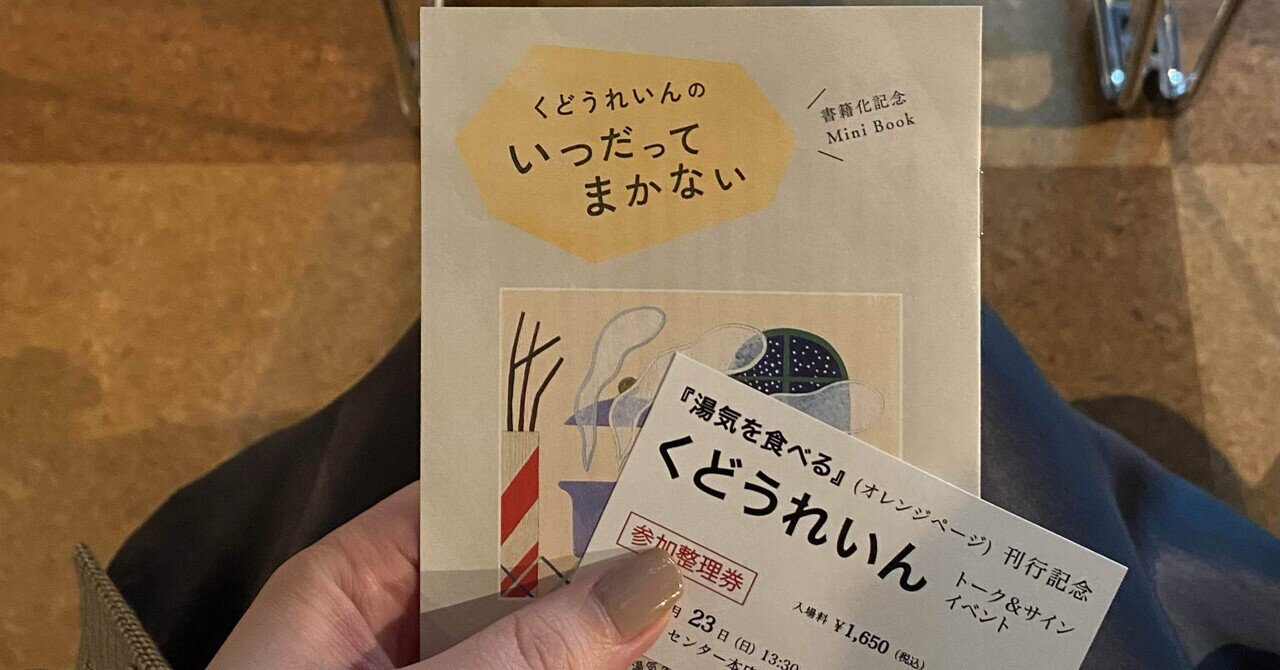 くどうれいんの
いつだって
まかない
書籍化記念
Mini Book
『湯気を食べる』(オレンジページ) 刊行記念
くどうれいん
トーク&サイン
イベント
参加整理券
入場料 ¥1,650 (税込)
日 23日(日) 13:30
センター本店
湯気の